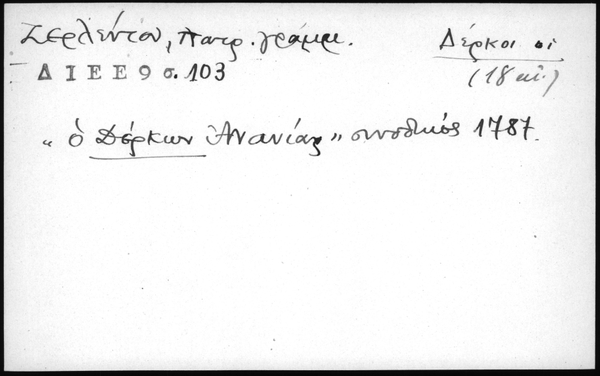 Ζερλέντου, Πατρ. γράμμ.
Δέρκοι οἱ
Δ Ι Ε Ε 9 σ. 103
(18 αἰ.)
« ὁ Δέρκων Ἀνανίας » συνοδικός 1787.